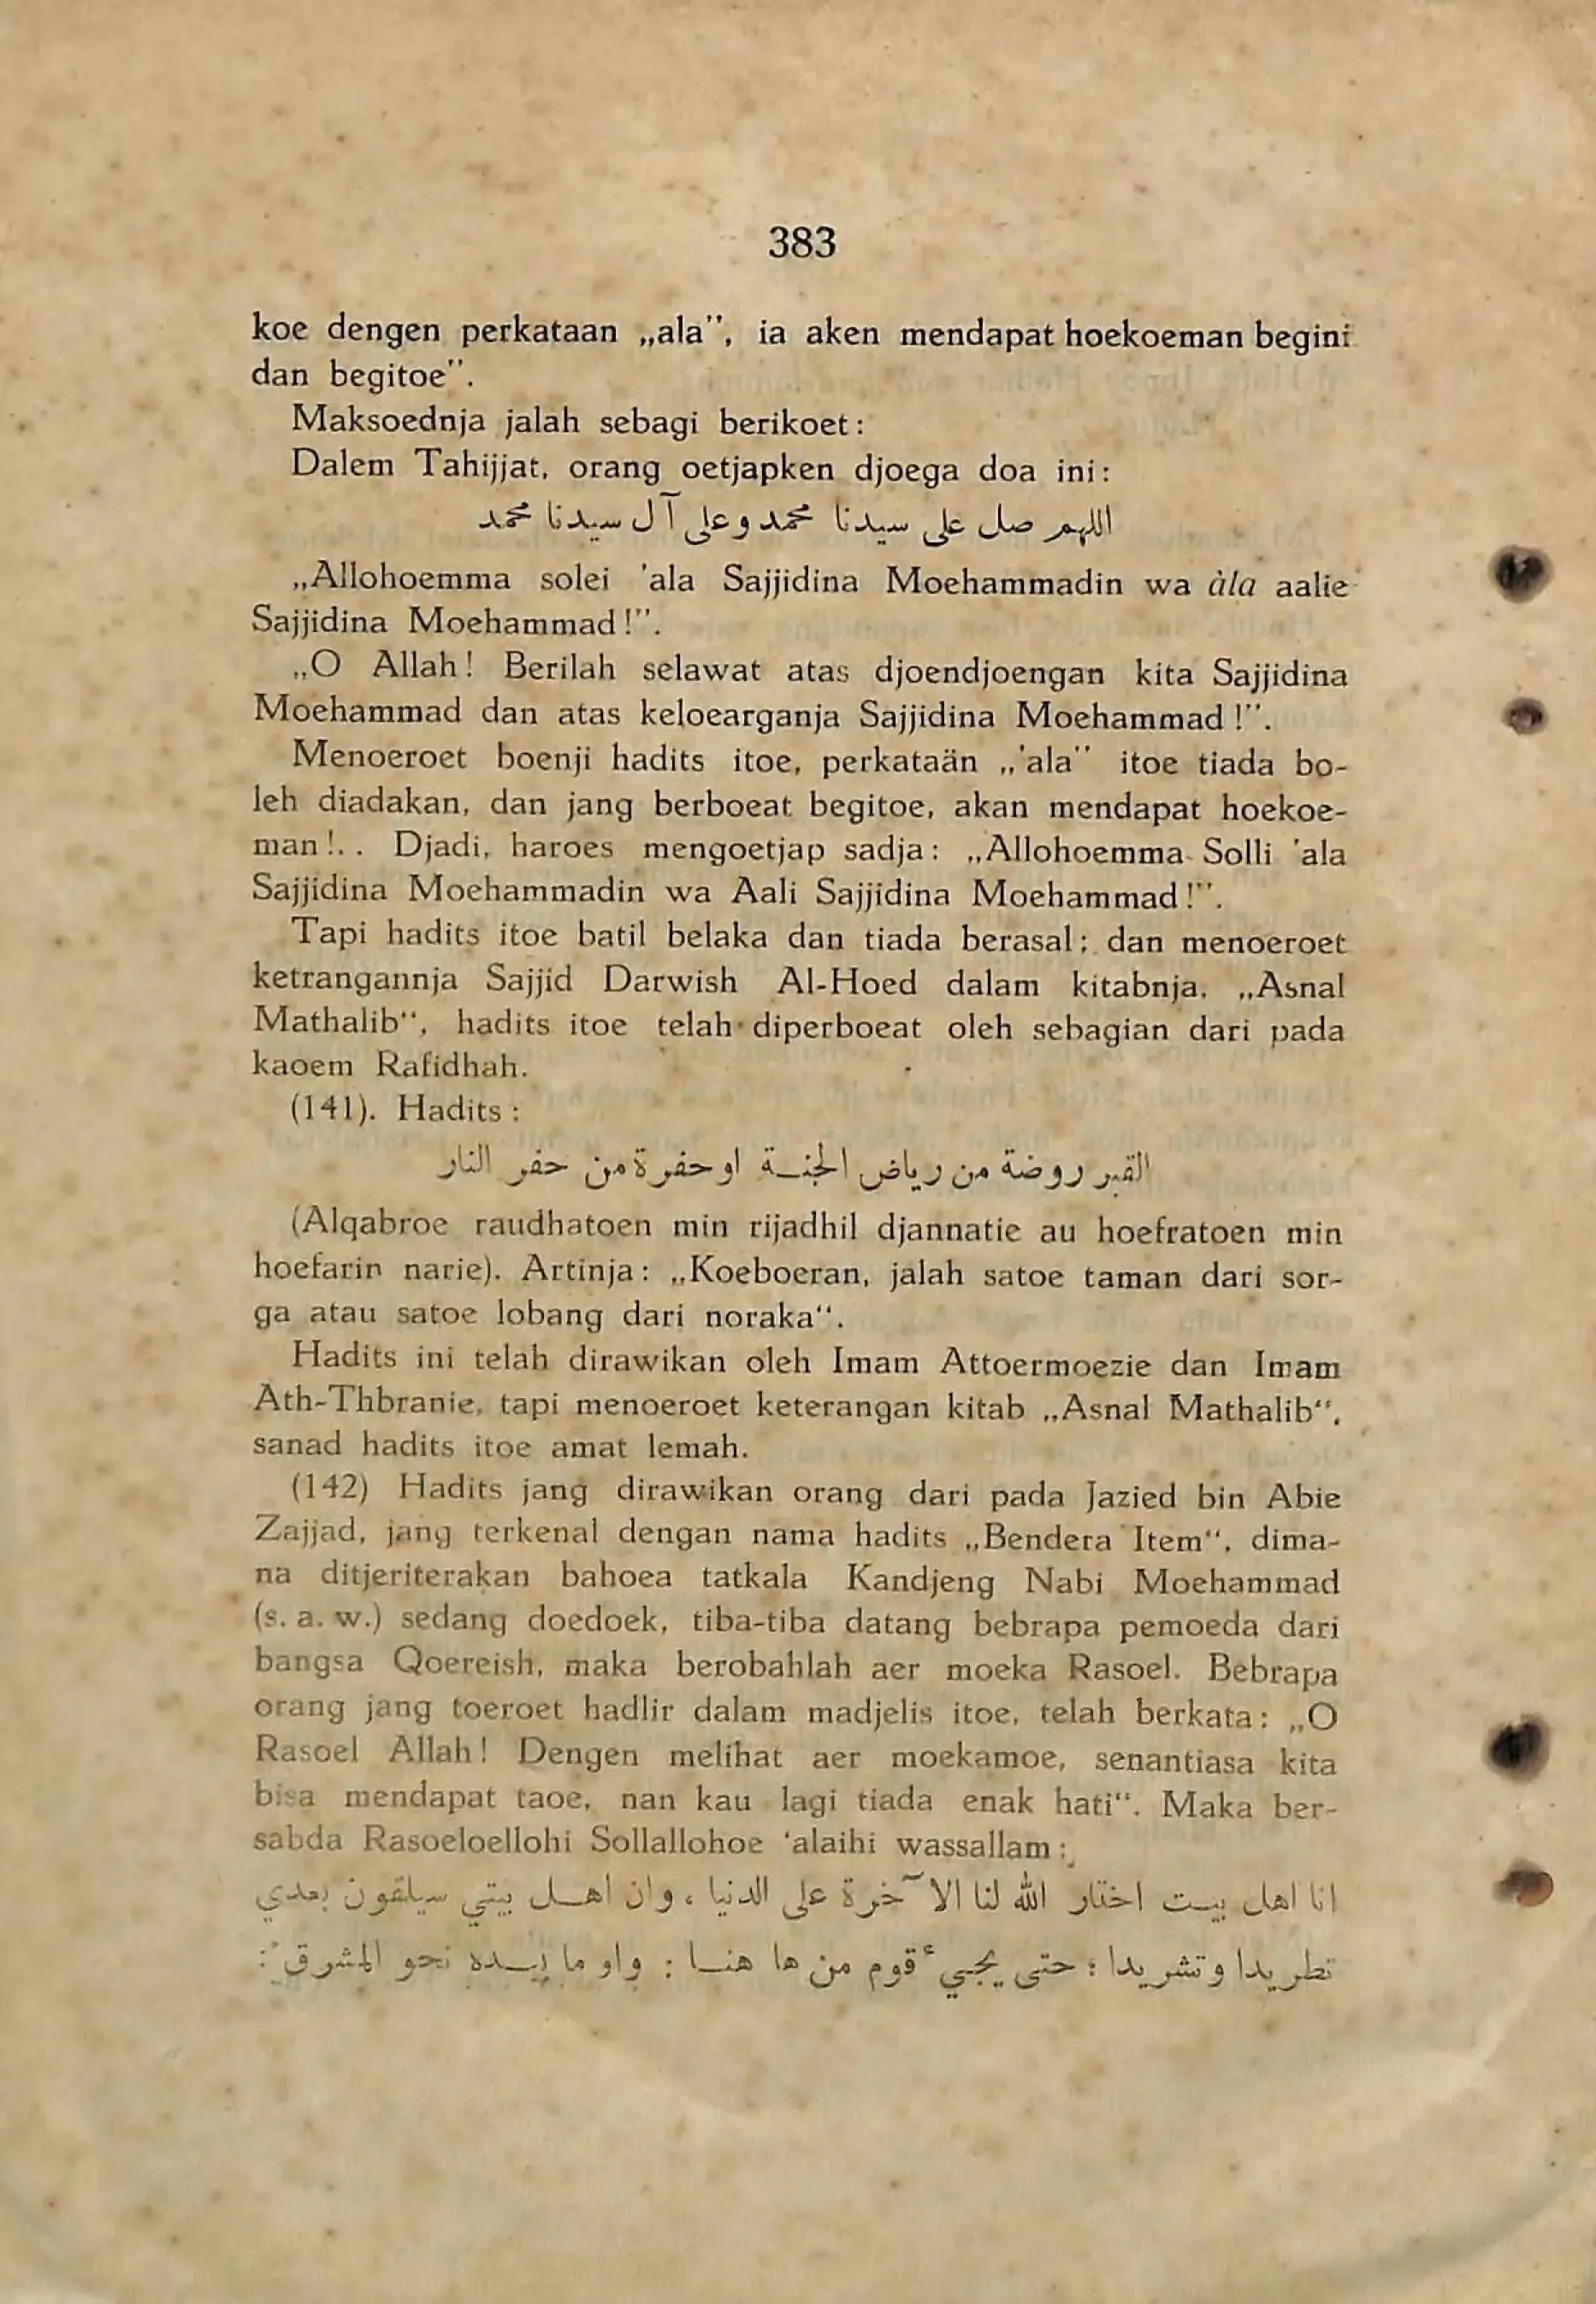 383
koe dengen perkataan „ala”, ia aken mendapat hoekoeman begini
dan begitoe”.
Maksoednja jalah sebagi berikoet:
Dalem Tahijjat, orang oetjapken djoega doa ini:
اللهم صل على سيدنا محمد وعلى آل سيدنا محمد
„Allohoemma solei 'ala Sajjidina Moehammadin wa àla aalie
Sajjidina Moehammad!”.
„O Allah! Berilah selawat atas djoendjoengan kita Sajjidina
Moehammad dan atas keloearganja Sajjidina Moehammad!”.
Menoeroet boenji hadits itoe, perkataän „'ala” itoe tiada bo-
leh diadakan, dan jang berboeat begitoe, akan mendapat hoekoe-
man!.. Djadi, haroes mengoetjap sadja: „Allohoemma Solli 'ala
Sajjidina Moehammadin wa Aali Sajjidina Moehammad!”.
Tapi hadits itoe batil belaka dan tiada berasal; dan menoeroet
ketrangannja Sajjid Darwish Al-Hoed dalam kitabnja, „Asnal
Mathalib“, hadits itoe telah diperboeat oleh sebagian dari pada
kaoem Rafidhah.
(141). Hadits:
القبر روضة من رياض الجنـة او حفرة من حفر النار
(Alqabroe raudhatoen min rijadhil djannatie au hoefratoen min
hoefarin narie). Artinja: „Koeboeran, jalah satoe taman dari sor-
ga atau satoe lobang dari noraka“.
Hadits ini telah dirawikan oleh Imam Attoermoezie dan Imam
Ath-Thbranie, tapi menoeroet keterangan kitab „Asnal Mathalib“,
sanad hadits itoe amat lemah.
(142) Hadits jang dirawikan orang dari pada Jazied bin Abie
Zajjad, jang terkenal dengan nama hadits „Bendera Item“, dima-
na ditjeriterakan bahoea tatkala Kandjeng Nabi Moehammad
(s. a. w.) sedang doedoek, tiba-tiba datang bebrapa pemoeda dari
bangsa Qoereish, maka berobahlah aer moeka Rasoel. Bebrapa
orang jang toeroet hadlir dalam madjelis itoe, telah berkata: „O
Rasoel Allah! Dengen melihat aer moekamoe, senantiasa kita
bisa mendapat taoe, nan kau lagi tiada enak hati“. Maka ber-
sabda Rasoeloellohi Sollallohoe 'alaihi wassallam:
انا اهل بيـت اختار الله لنا الآخرة على الدنيا ، وان اهـل بيتي سيلقون بعدي
تطريدا وتشريدا ؛ حتى يجيء قوم من ها هنـا : واو ما بيـده نحو المشرق :